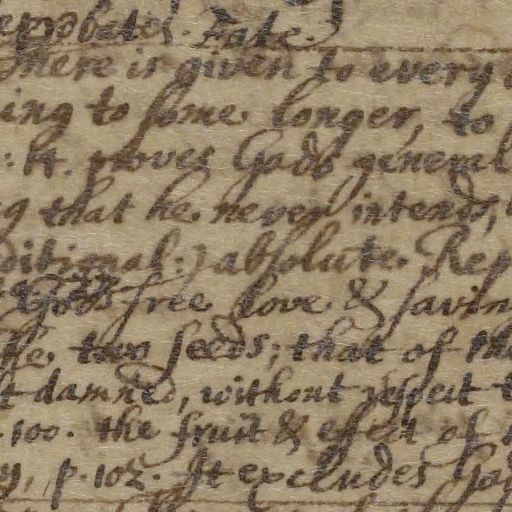 eprobates. Fate.
There is given to every
ing to some longer, to
: H. proves Gods general
g that he never intends,
ditional:) absolute Rep
Gods free love & savin
he two seeds; that of the
t damned, without respect t
. 100. the fruit & efect of
y, p. 102. It excludes Go